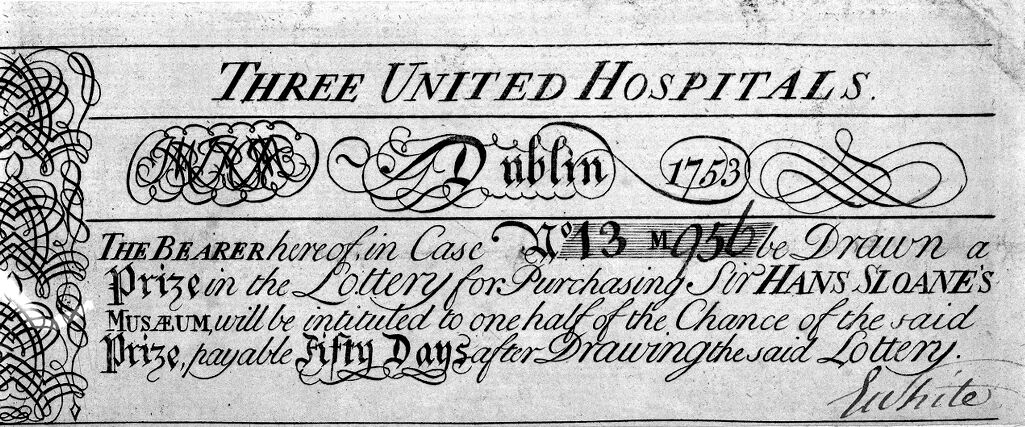 THREE UNITED HOSPITALS.
Dublin 1753
THE BEARER hereof, in Case No. 13 M 956 be Drawn a
Prize in the Lottery for Purchasing Sir HANS SLOANE'S
MUSÆUM, will be intituted to one half of the Chance of the said
Prize, payable Fifty Days after Drawing the said Lottery.
EWhite